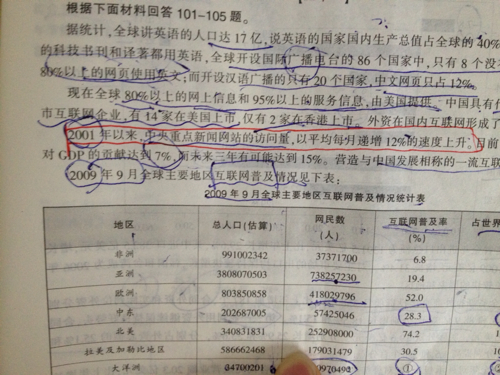 根据下面材料回答 101-105 题。
据统计，全球讲英语的人口达 17 亿，说英语的国家国内生产总值占全球的 40%
的科技书刊和译著都用英文，全球开设国际广播电台的 86 个国家中，只有 8 个没
80%以上的网页使用英文；而开设汉语广播的只有 20 个国家，中文网页只占 12%。
现在全球 80%以上的网上信息和 95%以上的服务信息，由美国提供。中国具有
市互联网企业，有 14 家在美国上市，仅有 2 家在香港上市。外资在国内互联网形成了
2001 年以来，中央重点新闻网站的访问量，以平均每月递增 12%的速度上升。目前
对 GDP 的贡献达到 7%，而未来三年有可能达到 15%。营造与中国发展相称的一流互联
2009 年 9 月全球主要地区互联网普及情况见下表：
2009 年 9 月全球主要地区互联网普及情况统计表
地区 总人口(估算) 网民数(人) 互联网普及率(%) 占世界
非洲 991002342 37371700 6.8
亚洲 3808070503 738257230 19.4
欧洲 803850858 418029796 52.0
中东 202687005 57425046 28.3
北美 340831831 252908000 74.2
拉美及加勒比地区 586662468 179031479 30.5
大洋洲 34700201